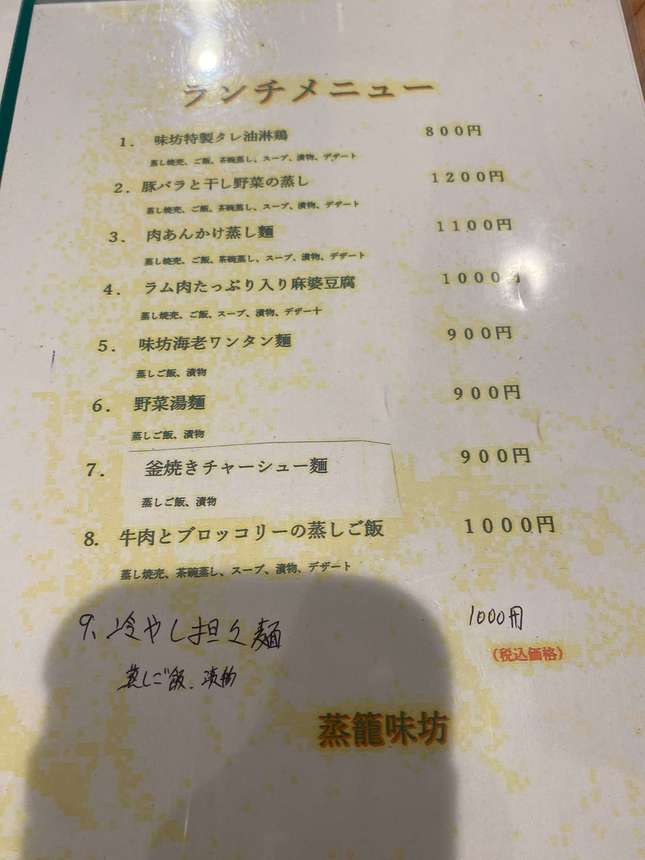 ランチメニュー
1. 味坊特製タレ油淋鶏 800円
蒸し焼売、ご飯、茶碗蒸し、スープ、漬物、デザート
2. 豚バラと干し野菜の蒸し 1200円
蒸し焼売、ご飯、茶碗蒸し、スープ、漬物、デザート
3. 肉あんかけ蒸し麺 1100円
蒸し焼売、ご飯、茶碗蒸し、スープ、漬物、デザート
4. ラム肉たっぷり入り麻婆豆腐 1000円
蒸し焼売、ご飯、スープ、漬物、デザート
5. 味坊海老ワンタン麺 900円
蒸しご飯、漬物
6. 野菜湯麺 900円
蒸しご飯、漬物
7. 釜焼きチャーシュー麺 900円
蒸しご飯、漬物
8. 牛肉とブロッコリーの蒸しご飯 1000円
蒸し焼売、茶碗蒸し、スープ、漬物、デザート
9、冷やし担々麺 1000円
蒸しご飯、漬物
(税込価格)
蒸籠味坊